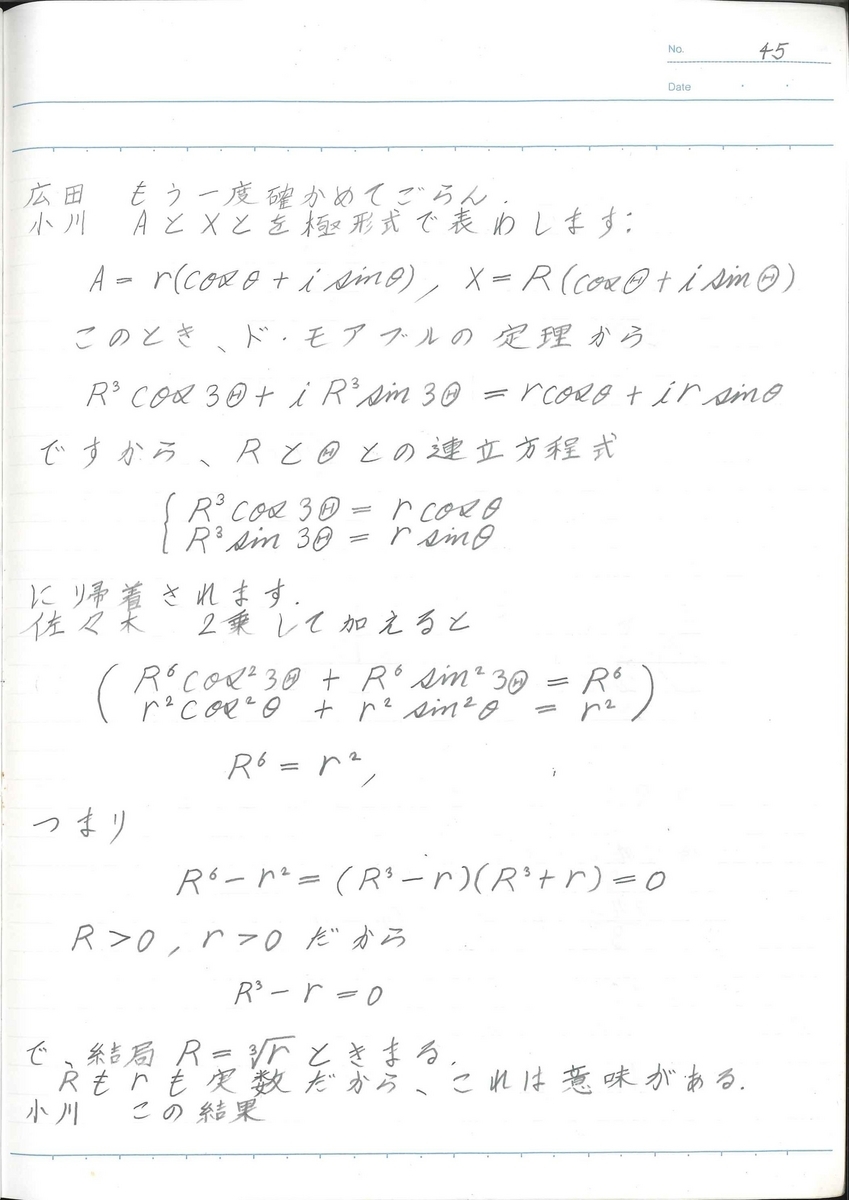 No. 45
Date
広田 もう一度確かめてごらん.
小川 AとXとを極形式で表わします:
A = r(cosθ + i sinθ), X = R(cosΘ + i sinΘ)
このとき、ド・モアブルの定理から
R³ cos 3Θ + i R³ sin 3Θ = r cosθ + i r sinθ
ですから、RとΘとの連立方程式
{ R³ cos 3Θ = r cosθ
R³ sin 3Θ = r sinθ
に帰着されます.
佐々木 2乗して加えると
( R⁶ cos² 3Θ + R⁶ sin² 3Θ = R⁶
r² cos² θ + r² sin² θ = r² )
R⁶ = r²,
つまり
R⁶ − r² = (R³ − r)(R³ + r) = 0
R > 0, r > 0 だから
R³ − r = 0
で、結局 R = ∛r ときまる.
Rもrも実数だから、これは意味がある.
小川 この結果